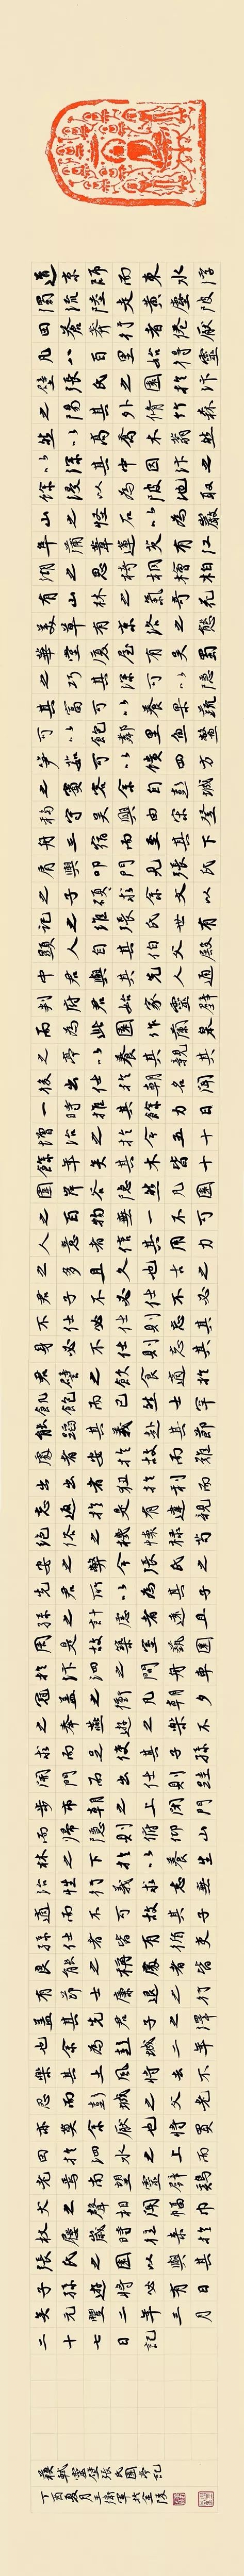 道京師而東水浮
濁流陸走黃塵陂
田蒼莽行者倦厭
凡八百里始得靈
壁張氏之園於汴
之陽其外脩竹森
然以高喬木蓊然
以深其中因汴之
餘浸以為陂池取
山之怪石以為巖
阜蒲葦蓮芡有江
湖之思椅桐檜柏
有山林之氣奇花
美草有京洛之態
華堂廈屋有吳蜀
之巧其深可以隱
其富可以養果蔬
可以飽鄰里魚鱉
筍茹可以饋四方
之賓客余自彭城
移守吳興由宋登
舟三宿而至其下
肩輿叩門見張氏
之子碩求余文以
記之維張氏世有
顯人自其伯父殿
中君與其先人通
判府君始家靈壁
而為此園作蘭皋
之亭以養其親其
後出仕於朝名聞
一時推其餘力日
增治之於今五十
餘年矣其木皆十
圍岸谷隱然凡園
之百物無一不可
人意者信其用力
之多且久也古之
君子不必仕不必
不仕必仕則忘其
身必不仕則忘其
君譬之飲食適於
飢飽而已然士罕
能蹈其義赴其節
處者安於故而難
出出者狃於利而
忘返於是有違親
絕俗之譏懷祿苟
安之弊今張氏之
先君所以為其子
孫之計慮者遠且
周是故築室藝園
於汴泗之間舟車
冠蓋之衝凡朝夕
之奉燕遊之樂不
求而足使其子孫
開門而出仕則跬
步市朝之上閉門
而歸隱則俯仰山
林之下於以養生
治性行義求志無
適而不可故其子
孫仕者皆有循吏
良能之稱處者皆
有節士廉退之行
蓋其先君子之澤
也余為彭城二年
樂其土風將去不
忍而彭城之父老
亦莫余厭也將買
田於泗水之上而
老焉南望靈壁雞
犬之聲相聞幅巾
杖屨歲時往來於
張氏之園以與其
子孫遊將必有日
矣元豐二年三月
二十七日記
蘇軾靈壁張氏園亭記
丁酉夏月王衛軍於金陵